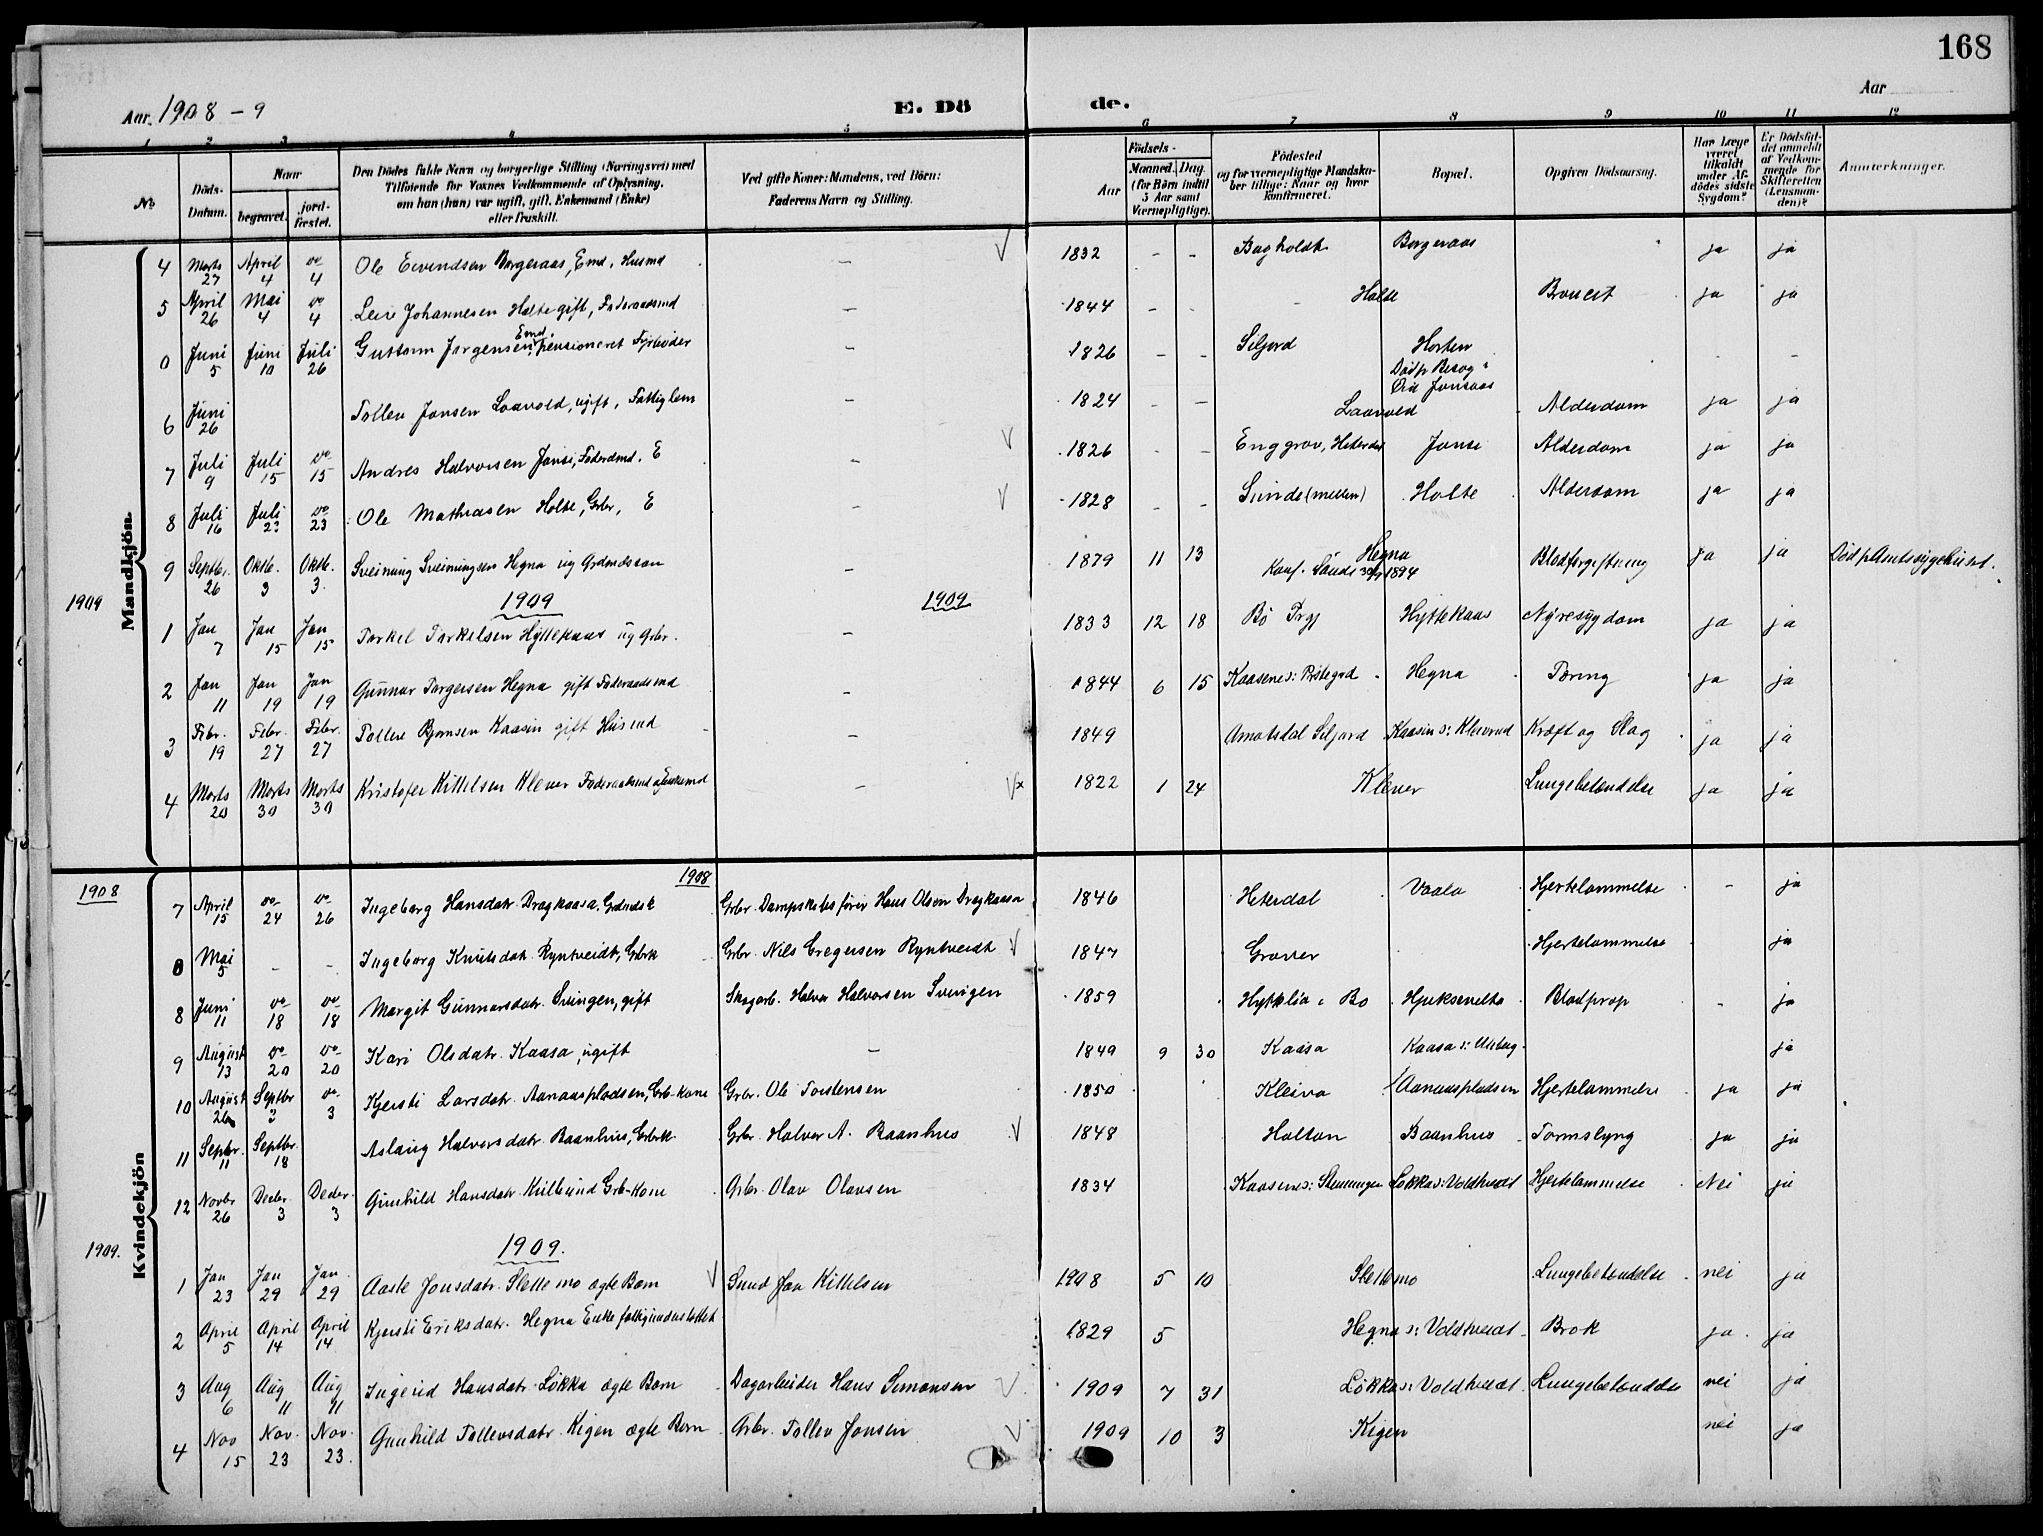 168
Aar. 1908 - 9
E. Dö
de.
Aar
1 2 3 4 5 6 7 8 9 10 11 12
No
Döds-Datum.
Naar
begravet.
jord-fæstet.
Den Dödes fulde Navn og borgerlige Stilling (Næringsvei) med
Tilföiende for Voxnes Vedkommende af Oplysning,
om han (hun) var ugift, gift, Enkemand (Enke)
eller fraskilt.
Ved gifte Koner: Mandens, ved Börn:
Faderens Navn og Stilling.
Födsels-
Aar
Maaned. Dag.
(for Börn indtil
5 Aar samt
Værnepligtige).
Födested
og for værnepligtige Mandska-
ber tillige: Naar og hvor
konfirmeret.
Bopæl.
Opgiven Dödsaarsag.
Har Læge
været
tilkaldt
under Af-
dödes sidste
Sygdom?
Er Dödsfal-
det anmeldt
af Vedkom-
mende for
Skifteretten
(Lensman-
den)?
Anmerkninger.
Mandkjön.
4 Marts 27 April 4 do 4 Ole Eivindsen Borgeraas, Emd. Husmd - 1832 - - Bagholdt Borgeraas ja ja
5 April 26 Mai 4 do 4 Leiv Johannesen Holte gift, Føderaadsmd - 1844 - - Holte ja ja
0 Juni 5 Juni 10 Juli 26 Guttorm Jørgensen, Emd. pensioneret Fyrbøder - 1826 - - Siljord Horten - -
Død p. Besøg i
6 Juni 26 Tollev Jonsen Laavold, ugift, Fattiglem - 1824 - - Laavold Alderdom ja ja
7 Juli 9 Juli 15 do 15 Andres Halvorsen Jonsi, Føderdmd. E - 1826 - - Enggrav, Hiterdal Jonsi Alderdom ja ja
8 Juli 16 Juli 23 do 23 Ole Mathiasen Holte, Grbr, E 1828 - - Sunde (mellem) Holte Alderdom ja ja
9 Septbr. 26 Oktb. 3 Oktb. 3 Sveinung Sveinungsen Hegna ug Grdmdssøn - 1879 11 13 Hegna Konf. Saude 1894 Blodforgiftning ja ja Død p. Amtssygehuset.
1909 1909 1909
1 Jan 7 Jan 15 Jan 15 Torkel Torkelsen Hyttekaas ug Grbr. - 1833 12 18 Bø Prgj Hyttekaas Nyresygdom ja ja
2 Jan 11 Jan 19 Jan 19 Gunnar Torgersen Hegna gift Føderaadsmd - 1844 6 15 Kaasene s: Hegna Tæring ja ja
3 Febr. 19 Febr. 27 Febr. 27 Tollev Bjørnsen Kaasin gift Husmd - 1849 Amotsdal Siljord Kaasin s: Kleivrud Kræft og Slag ja ja
4 Marts 20 Marts 30 Marts 30 Kristofer Kittelsen Klever Føderaadsmd Enkemd - 1822 1 24 Klever Lungebetændelse ja ja
Kvindekjön
1908 1908
7 April 15 do 24 do 26 Ingeborg Hansdatr. Dragkaasa. Grdmdsk Grbr. Dampskibsfører Hans Olsen Dragkaasa 1846 Heterdal Vaala Hjertelammelse - ja
0 Mai 5 - - Ingeborg Knutsdatr. Ryntveidt, Grbrk Grbr. Nils Gregersen Ryntveidt 1847 Graver Hjertelammelse ja
8 Juni 11 do 18 do 18 Margit Gunnarsdatr. Svingen, gift Skogarb. Halvor Halvorsen Svingen 1859 Hyttelia i Bø Hjuksevelta Blodprop - ja
9 August 13 do 20 do 20 Kari Olsdatr. Kaasa, ugift - 1849 9 30 Kaasa Kaasa s: ja
10 August 26 Septbr 3 do 3 Kjersti Larsdatr. Aanaaspladsen, Grb-kone Grbr. Ole Torstensen 1850 Kleiva Aanaaspladsen Hjertelammelse ja ja
11 Septbr. 11 Septbr. 18 Aslaug Halvorsdatr. Baanhus, Grbrk. Grbr. Halvor A. Baanhus 1848 Holtan Baanhus Tarmslyng ja ja
12 Novbr 26 Decbr. 3 Decbr. 3 Gunhild Hansdatr. Grb-kone Grbr. Olav Olavsen 1834 Kaasene s: Løkka s: Voldtveidt Hjertelammelse Nei ja
1909. 1909.
1 Jan 23 Jan 29 Jan 29 Aaste Jonsdatr. Slettemo ægte Barn Smed Jon Kittelsen 1908 5 10 Slettemo Lungebetændelse nei ja
2 April 5 April 14 April 14 Kjersti Eriksdatr. Hegna Enke fattigunderstøttet 1829 5 Hegna s: Voldtveidt Brok ja ja
3 Aug 6 Aug 11 Aug 11 Ingerid Hansdatr. Løkka ægte Barn Dagarbeider Hans Simonsen 1909 7 31 Løkka s: Voldtveidt Lungebetændelse nei ja
4 Nov 15 Nov. 23 Nov. 23. Gunhild Tollevsdatr. Kigen ægte Barn Grbr. Tollev Jonsen 1909 10 3 Kigen nei ja